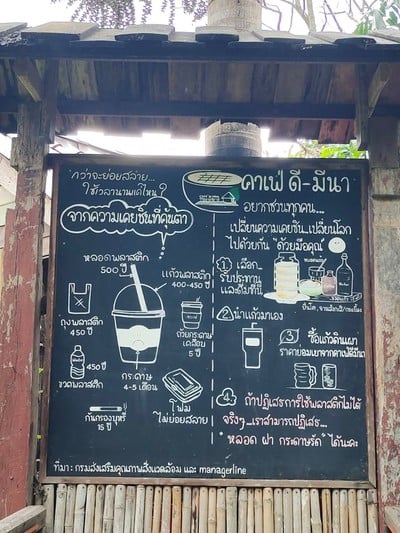 "กว่าจะย่อยสลาย...
ใช้เวลานานแค่ไหน?"
จากความเคยชินที่คุ้นตา
หลอดพลาสติก
500 ปี
แก้วพลาสติก
400-450 ปี
ถุงพลาสติก
450 ปี
ถ้วยกระดาษ
เคลือบ
5 ปี
450 ปี
ขวดพลาสติก
กระดาษ
4-5 เดือน
โฟม
ไม่ย่อยสลาย
ก้นกรองบุหรี่
15 ปี
คาเฟ่ ดี-มีนา
อยากชวนทุกคน...
เปลี่ยนความเคยชิน..เปลี่ยนโลก
ไปด้วยกัน "ด้วยมือคุณ"
1 เลือก..
รับประทาน
และดื่มที่นี่
2 นำแก้วมาเอง
3 ซื้อแก้วดินเผา
4 ถ้าปฏิเสธการใช้พลาสติกไม่ได้
จริงๆ...เราสามารถปฏิเสธ...
"หลอด ฝา กระดาษรัด" ได้นะคะ
ที่มา : กรมส่งเสริมคุณภาพสิ่งแวดล้อม และ managerline